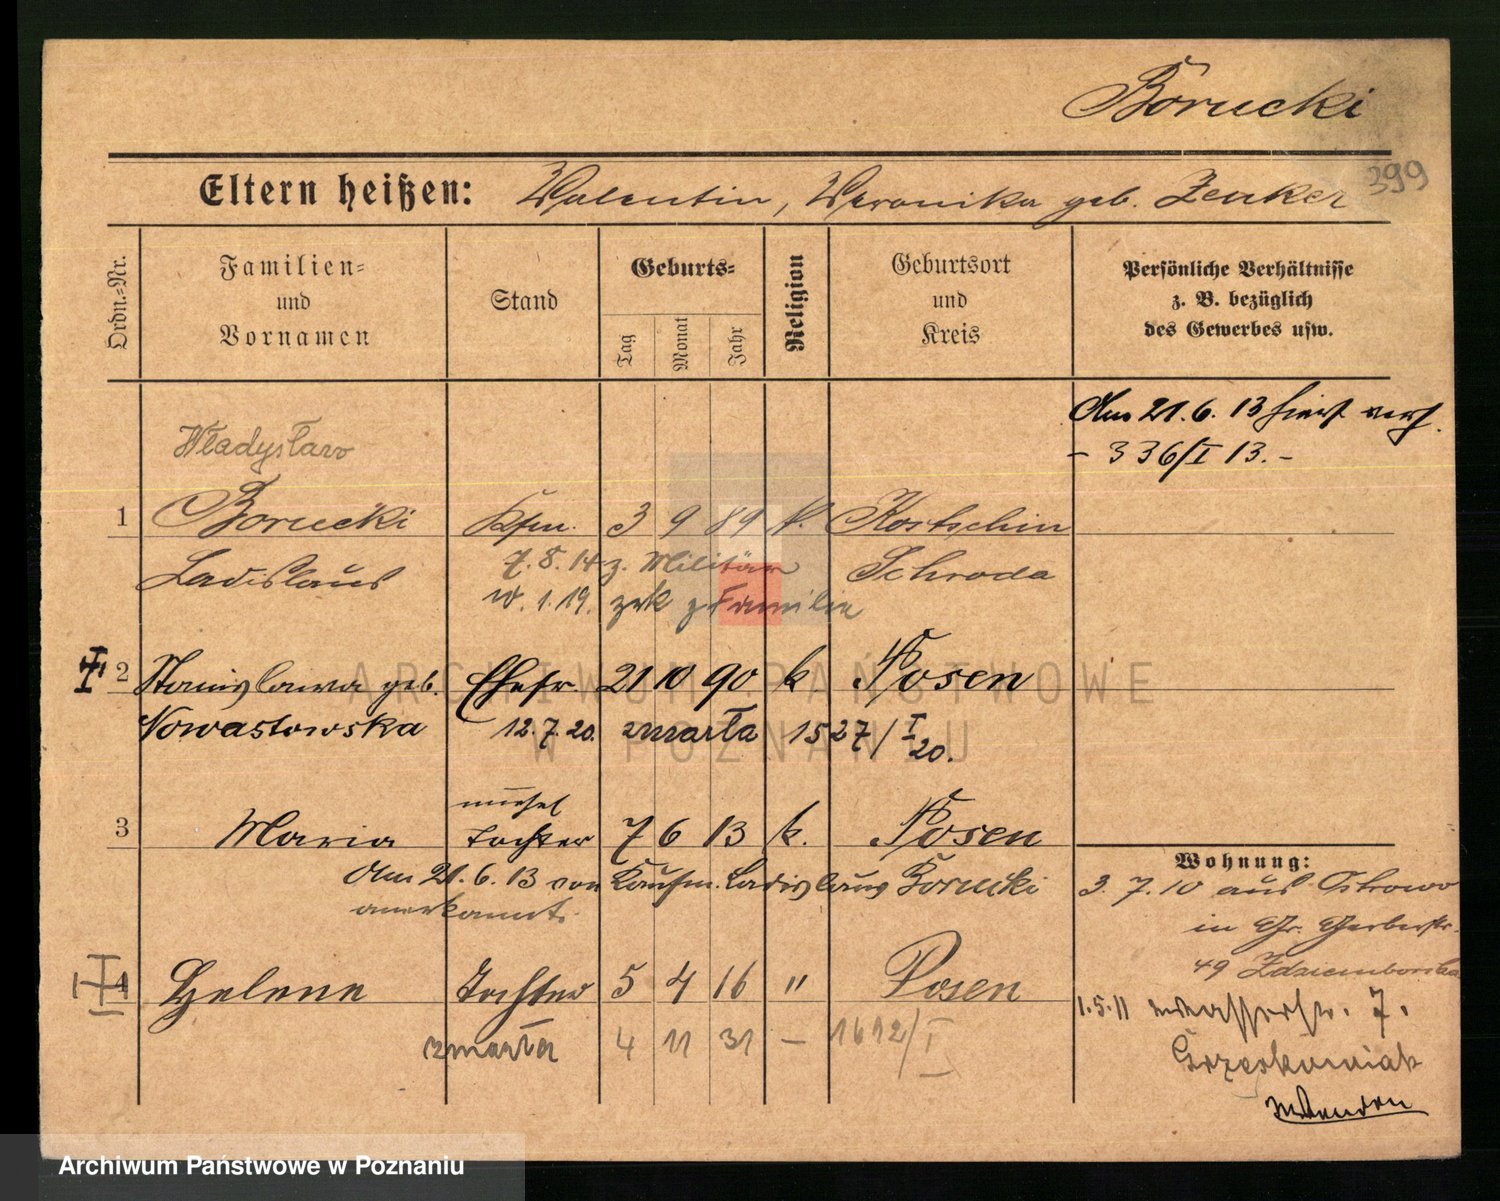 Borucki
399
Eltern heißen: Valentin, Weronika geb. Zenker
Ordn.=Nr.
Familien=
und
Vornamen
Stand
Geburts=
Tag
Monat
Jahr
Religion
Geburtsort
und
Kreis
Persönliche Verhältnisse
z. B. bezüglich
des Gewerbes usw.
Am 21.6.13 hier verh.
– 336/I 13. –
Władysław
1 Borucki Kfm. 3 9 89 k. Kostschin
Ladislaus Schroda
7.8.14 z. Militär
1.19. zrk z Familie
2 Stanislawa geb. Ehefr. 21 10 90 k Posen
Nowastowska 12.7.20. zmarła 1527/I 20.
unehel
3 Maria Tochter 7 6 13 k. Posen
Am 21.6.13 von Kaufm. Ladislaus Borucki
anerkannt.
4 Helene Tochter 5 4 16 " Posen
zmarła 4 11 31 – 1612/I
Wohnung:
3.7.10 aus Ostrowo
in Gr. Gerberstr.
49
1.5.11 Wasserstr. 7.
Grzeskowiak
ARCHIWUM PAŃSTWOWE
W POZNANIU
Archiwum Państwowe w Poznaniu